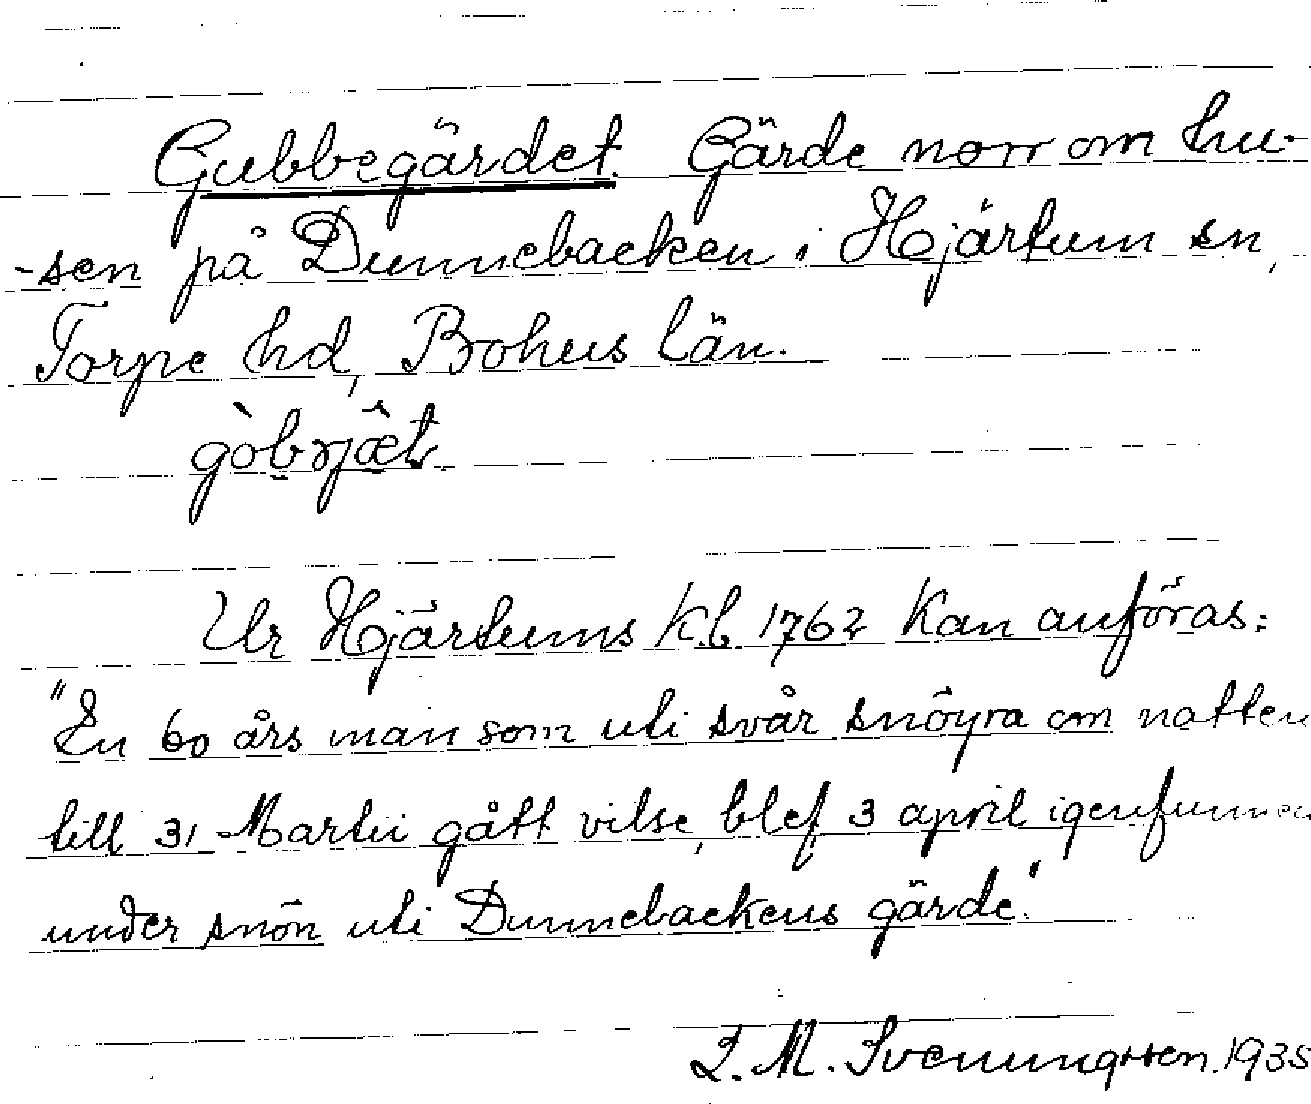 Gubbegärdet. Gärde norr om hu-
-sen på Dunnebacken i Hjärtum sn,
Torpe hd, Bohus län.
Ur Hjärtums Kb. 1762 kan anföras:
"En 60 års man som uti svår snöyra om natten
till 31 Martii gått vilse, blef 3 april igenfunnen
under snön uti Dunnebackens gärde."
L. M. Svenungsson. 1935